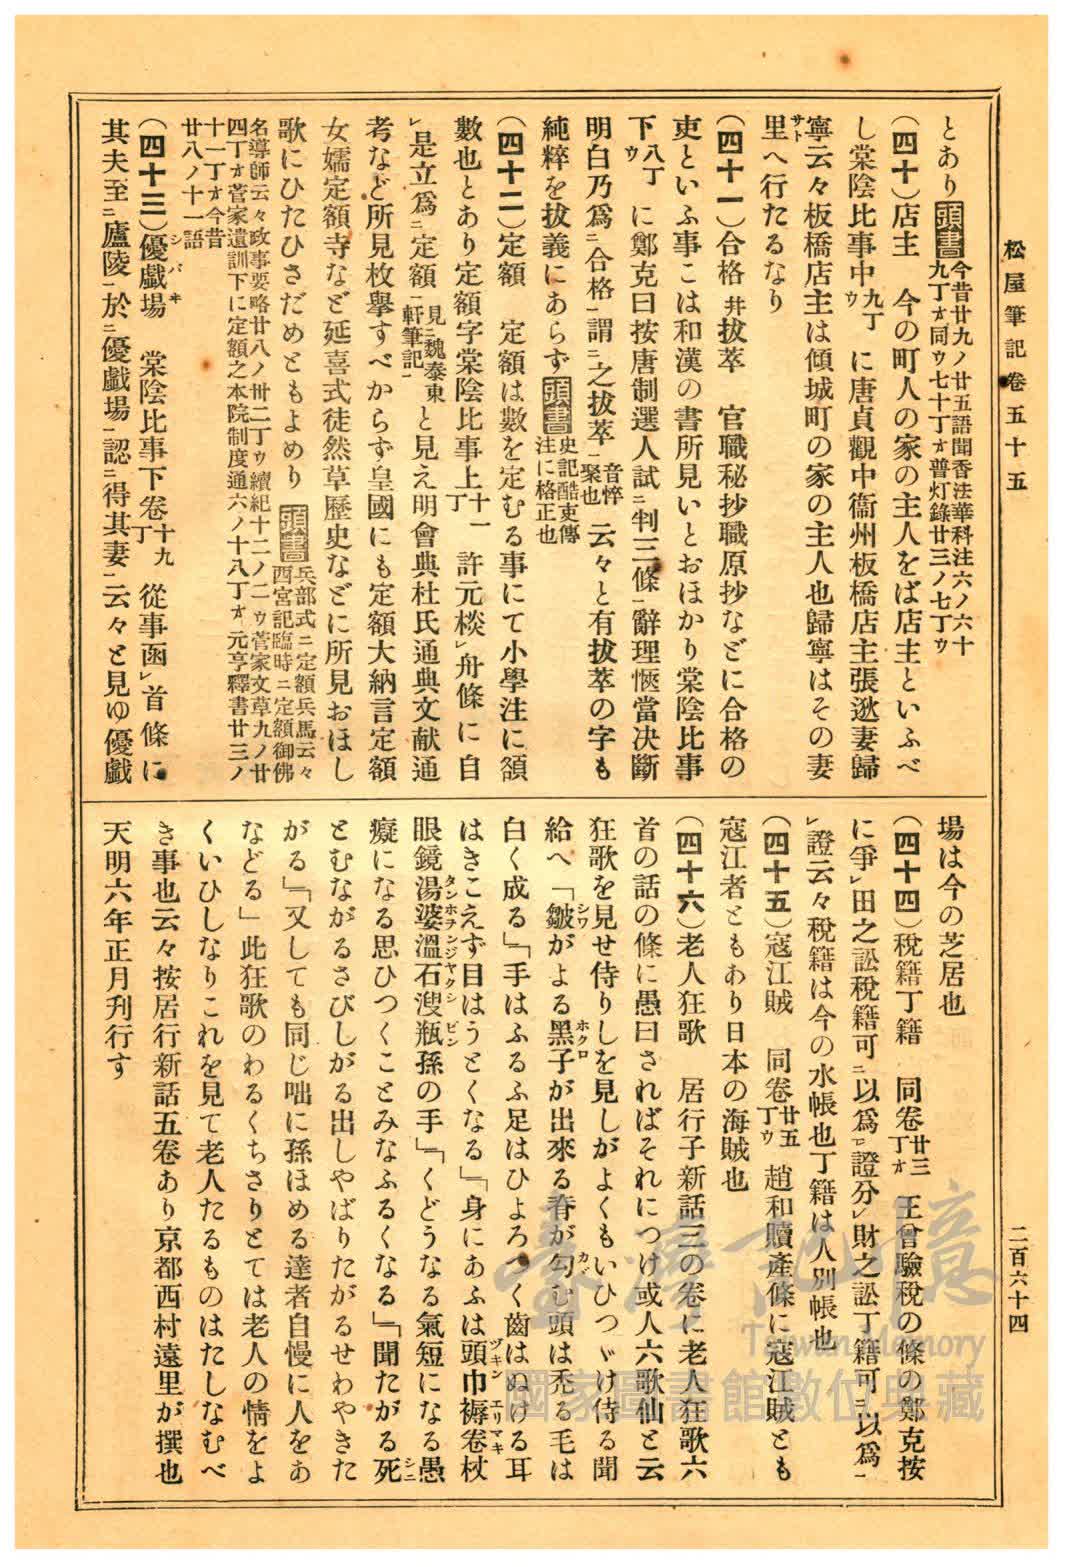 松屋筆記卷五十五
二百六十四
とあり 頭書 今昔廿九ノ廿五語聞香法華科注六ノ六十
九丁オ同ウ七十丁オ普灯錄廿三ノ七丁ウ
(四十)店主 今の町人の家の主人をば店主といふべ
し棠陰比事中九丁ウに唐貞觀中衞州板橋店主張逖妻歸
寧云々板橋店主は傾城町の家の主人也歸寧はその妻
里へ行たるなり
サト
(四十一)合格幷拔萃 官職秘抄職原抄などに合格の
吏といふ事こは和漢の書所見いとおほかり棠陰比事
下八丁ウに鄭克曰按唐制選人試ニ判三條一辭理愜當决斷
明白乃爲ニ合格一謂ニ之拔萃一音悴聚也云々と有拔萃の字も
純粹を拔義にあらず 頭書 史記酷吏傳
注に格正也
(四十二)定額 定額は數を定むる事にて小學注に額
數也とあり定額字棠陰比事上十一丁許元棪レ舟條に自
レ是立爲ニ定額一見ニ魏泰東軒筆記一と見え明會典杜氏通典文献通
考など所見枚擧すべからず皇國にも定額大納言定額
女嬬定額寺など延喜式徒然草歷史などに所見おほし
歌にひたひさだめともよめり 頭書 兵部式ニ定額兵馬云々
西宮記臨時ニ定額御佛
名導師云々政事要略廿八ノ卅二丁ウ續紀十二ノ二ウ菅家文草九ノ廿
四丁オ菅家遺訓下に定額之本院制度通六ノ十八丁オ元亨釋書廿三ノ
十一丁オ今昔
廿八ノ十一語
(四十三)優戲場 棠陰比事下卷十九丁從事函レ首條に
シバキ
其夫至ニ廬陵一於ニ優戲場一認ニ得其妻一云々と見ゆ優戲
場は今の芝居也
(四十四)稅籍丁籍 同卷廿三丁オ王曾驗稅の條の鄭克按
に爭レ田之訟稅籍可ニ以爲一レ證分レ財之訟丁籍可ニ以爲一
レ證云々稅籍は今の水帳也丁籍は人別帳也
(四十五)寇江賊 同卷廿五丁ウ趙和贖產條に寇江賊とも
寇江者ともあり日本の海賊也
(四十六)老人狂歌 居行子新話三の卷に老人狂歌六
首の話の條に愚曰さればそれにつけ或人六歌仙と云
狂歌を見せ侍りしを見しがよくもいひつゞけ侍る聞
給へ「皺がよる黑子が出來る脊が勾む頭は禿る毛は
シワ ホクロ カヾ
白く成る」「手はふるふ足はひよろつく齒はぬける耳
はきこえず目はうとくなる」「身にあふは頭巾褥卷杖
ヅキン エリマキ
眼鏡湯婆溫石溲瓶孫の手」「くどうなる氣短になる愚
タンホヲンジヤクシビン
癡になる思ひつくことみなふるくなる」「聞たがる死
シニ
とむながるさびしがる出しやばりたがるせわやきた
がる」「又しても同じ咄に孫ほめる達者自慢に人をあ
などる」此狂歌のわるくちさりとては老人の情をよ
くいひしなりこれを見て老人たるものはたしなむべ
き事也云々按居行新話五卷あり京都西村遠里が撰也
天明六年正月刊行す
臺灣記憶
Taiwan Memory
國家圖書館數位典藏